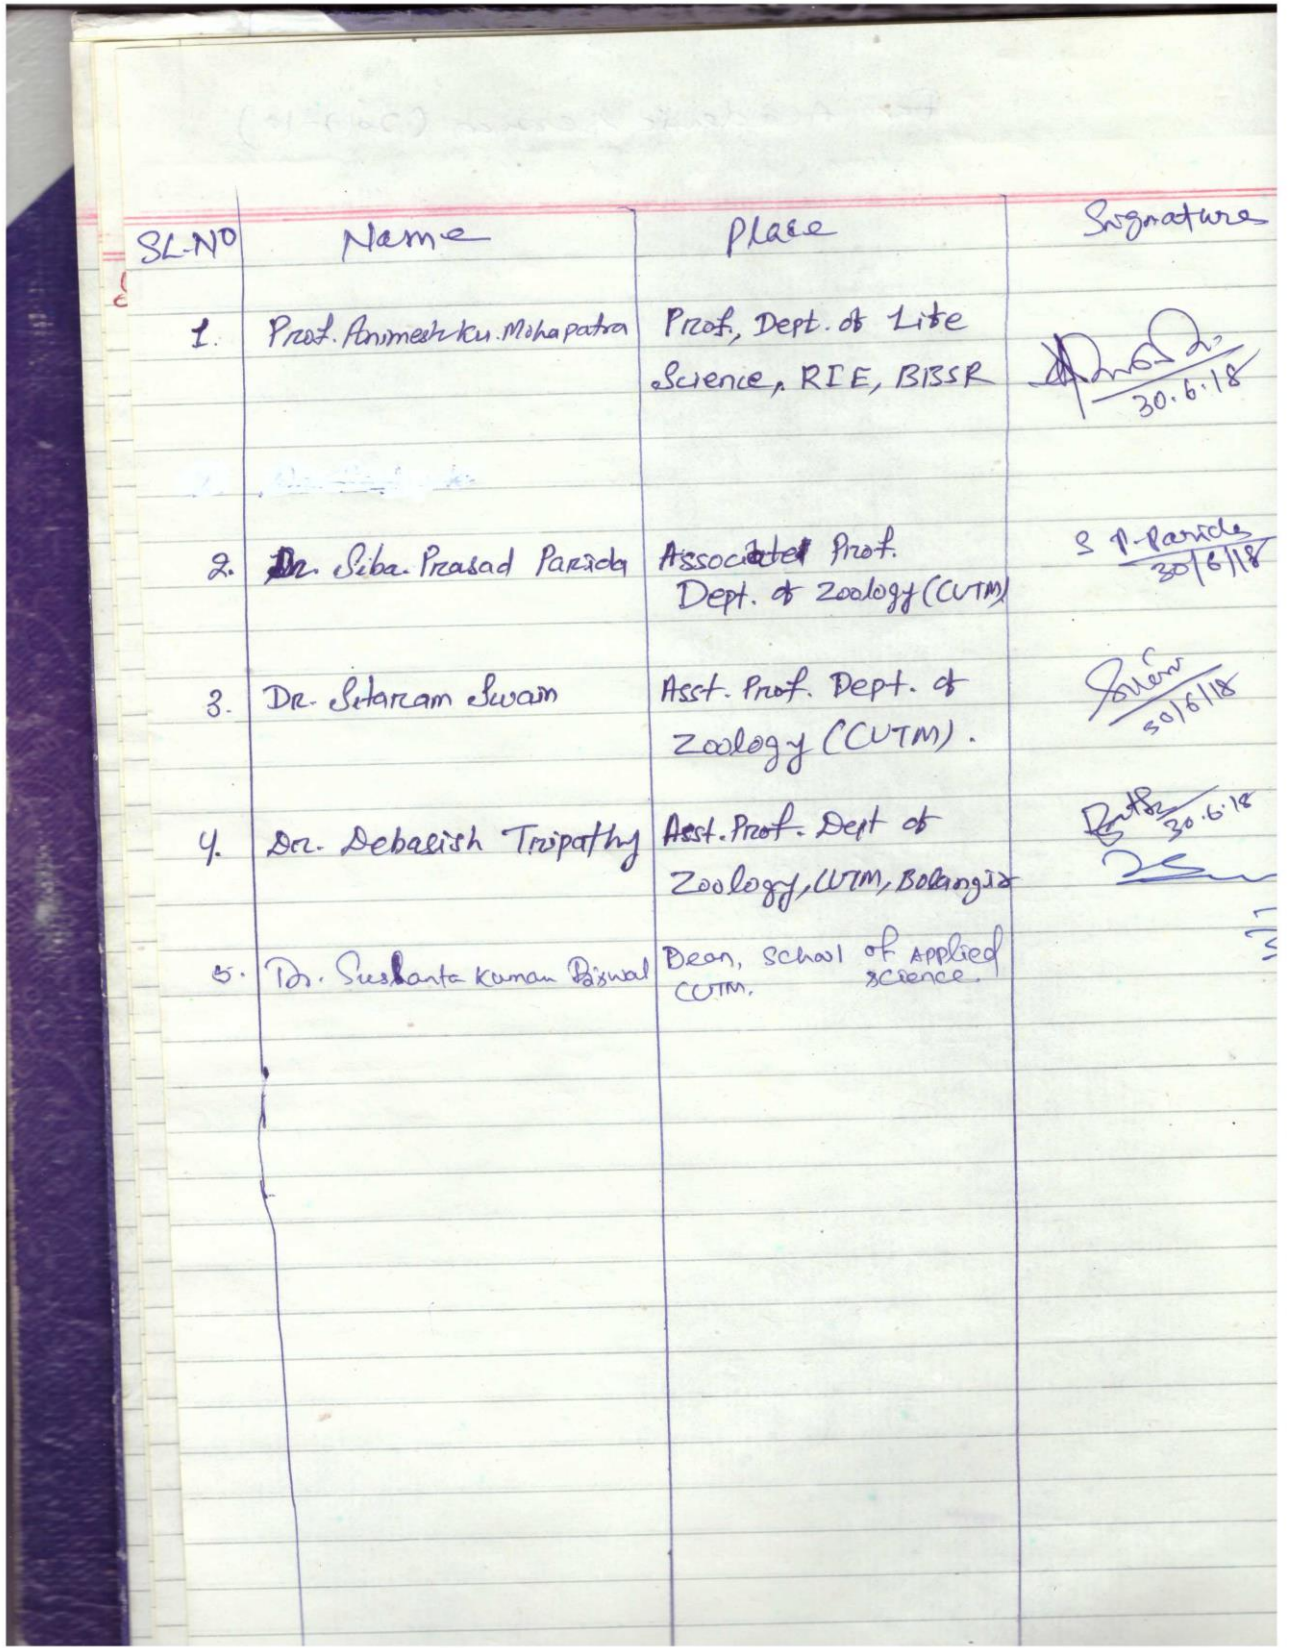 SL.NO Name Place Signature
1. Prof. Animesh Ku. Mohapatra Prof., Dept. of Life
Science, RIE, BBSR
30.6.18
2. Dr. Siba Prasad Parida Associate Prof. S P. Parida
Dept. of Zoology (CUTM) 30/6/18
3. Dr. Sitaram Swain Asst. Prof. Dept. of
Zoology (CUTM). 30/6/18
4. Dr. Debasish Tripathy Asst. Prof. Dept of 30.6.18
Zoology, CUTM, Bolangir
5. Dr. Sushanta Kumar Biswal Dean, School of Applied
CUTM. Science.